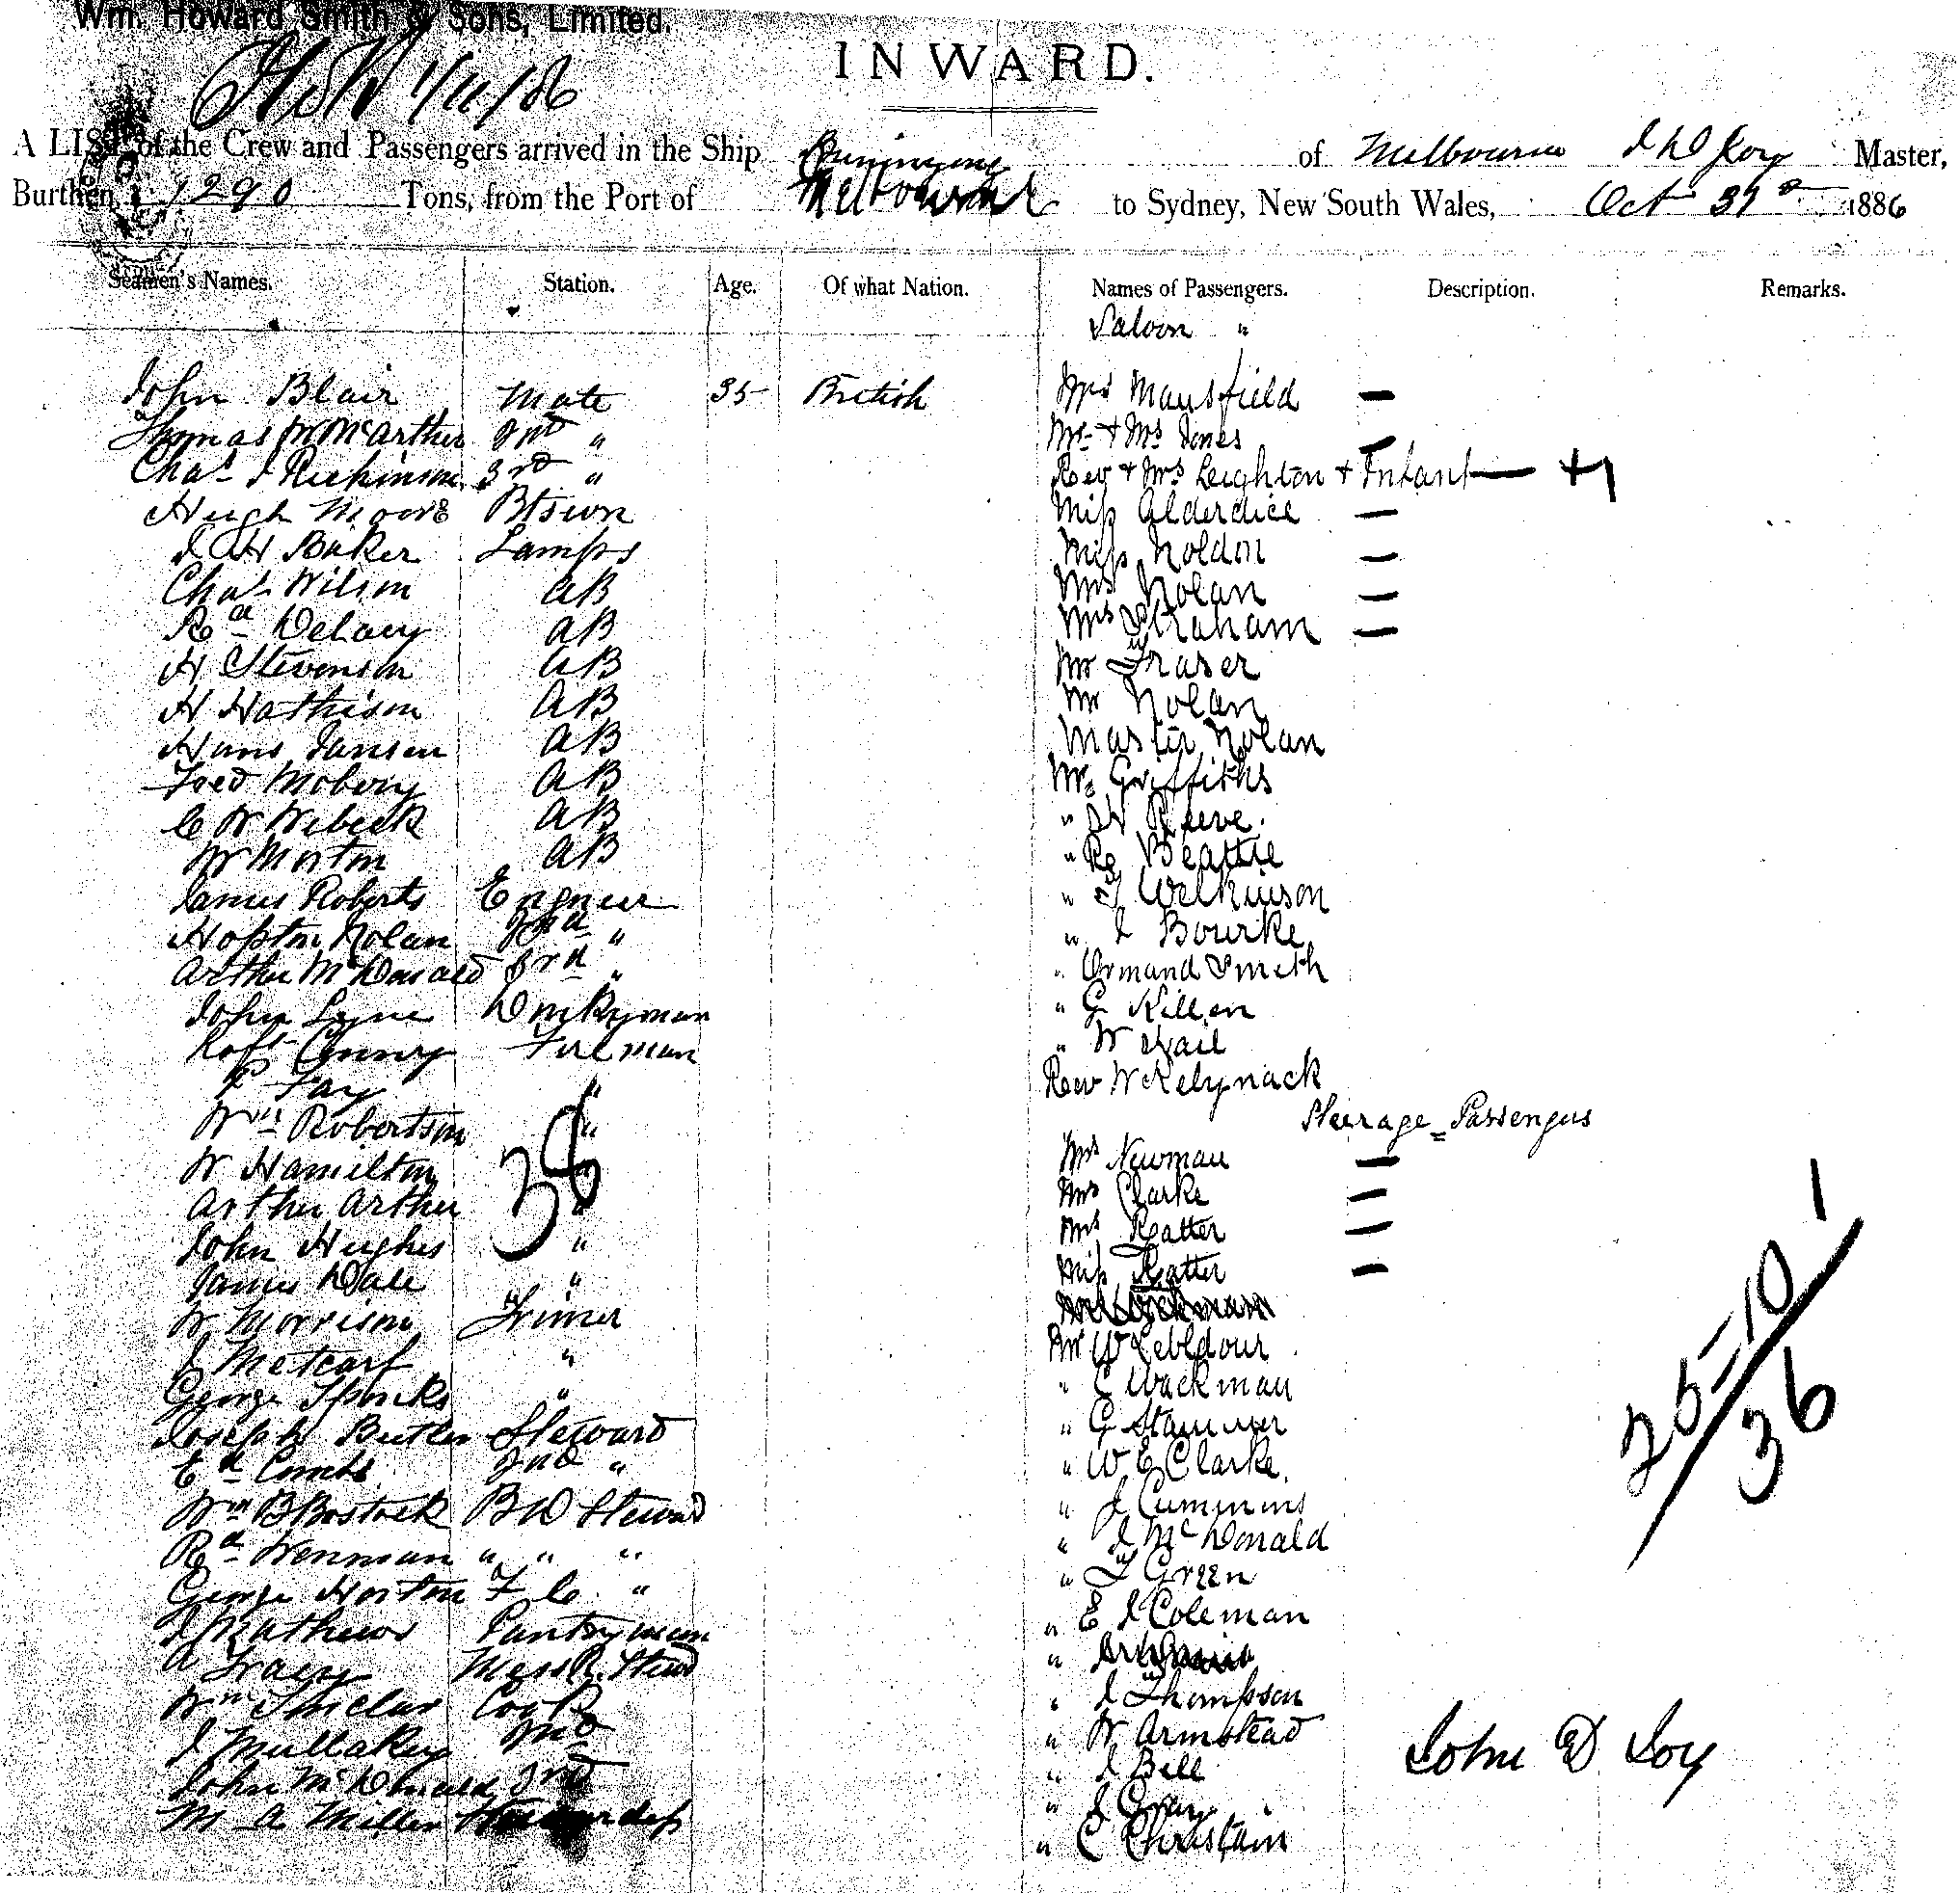 Wm. Howard Smith & Sons, Limited.
INWARD.
1/11/86
A LIST of the Crew and Passengers arrived in the Ship Buninyong of Melbourne J D Joy Master,
Burthen, 1290 Tons, from the Port of Melbourne to Sydney, New South Wales, Oct 31st 1886
Seamen's Names. Station. Age. Of what Nation. Names of Passengers. Description. Remarks.
Saloon "
John Blair Mate 35 British Mrs Mansfield —
Thomas W McArthur 2nd " Mr + Mrs Jones —
Chas J Rickinson 3rd " Rev + Mrs Leighton + Infant — +1
Hugh Moore Btswn Miss Alderdice —
J H Baker Lamps Miss Noldon —
Chas Wilson AB Mrs Nolan —
Rd Delany AB Mrs Straham —
H Stevenson AB Mr Fraser
H Hathison AB Mr Nolan
Hans Jansen AB Master Nolan
Fred Moberg AB Mr Griffiths
C W Wibeck AB " H Reeve.
W Morton AB " Beattie
James Roberts Engneer " Wilkinson
Hopton Nolan 2nd " " J Bourke
Arthur McDonald 3rd " " Ormand Smith
John Lyne Donkyman " G Killen
Robt Conny Fireman " W Hail
P Fay " Rev W Kelynack
Steerage Passengers
Wm Robertson " Mrs Newman —
W Hamilton " Mrs Clarke —
Arthur Arthur " Mrs Ratter —
John Hughes " Miss Ratter —
38
James Dale "
W Morrison Trimer Mr W Lebldour
J Metcarf " " E Wackman
George Sponks " " G Stammer
Joseph Butler Steward " W E Clarke.
Ed Combs 2nd " " J Cummins
Wm B Bostock BD Steward " J McDonald
Rd Wenman " " " " T Green
George Horton F C " " E J Coleman
J Mathews Pantryman "
A Tracey Mess R. Stewd " J Thompson
Wm Sinclar Cook " W Armstead
J Mullakey 2nd " J Bell
John McDonald 3rd " J Gray
M A Miller Stewardess " C Christain
1
26-10
36
John D Joy